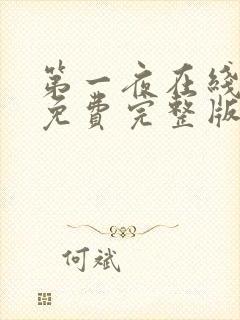 第一夜在线
免费完整版
何斌